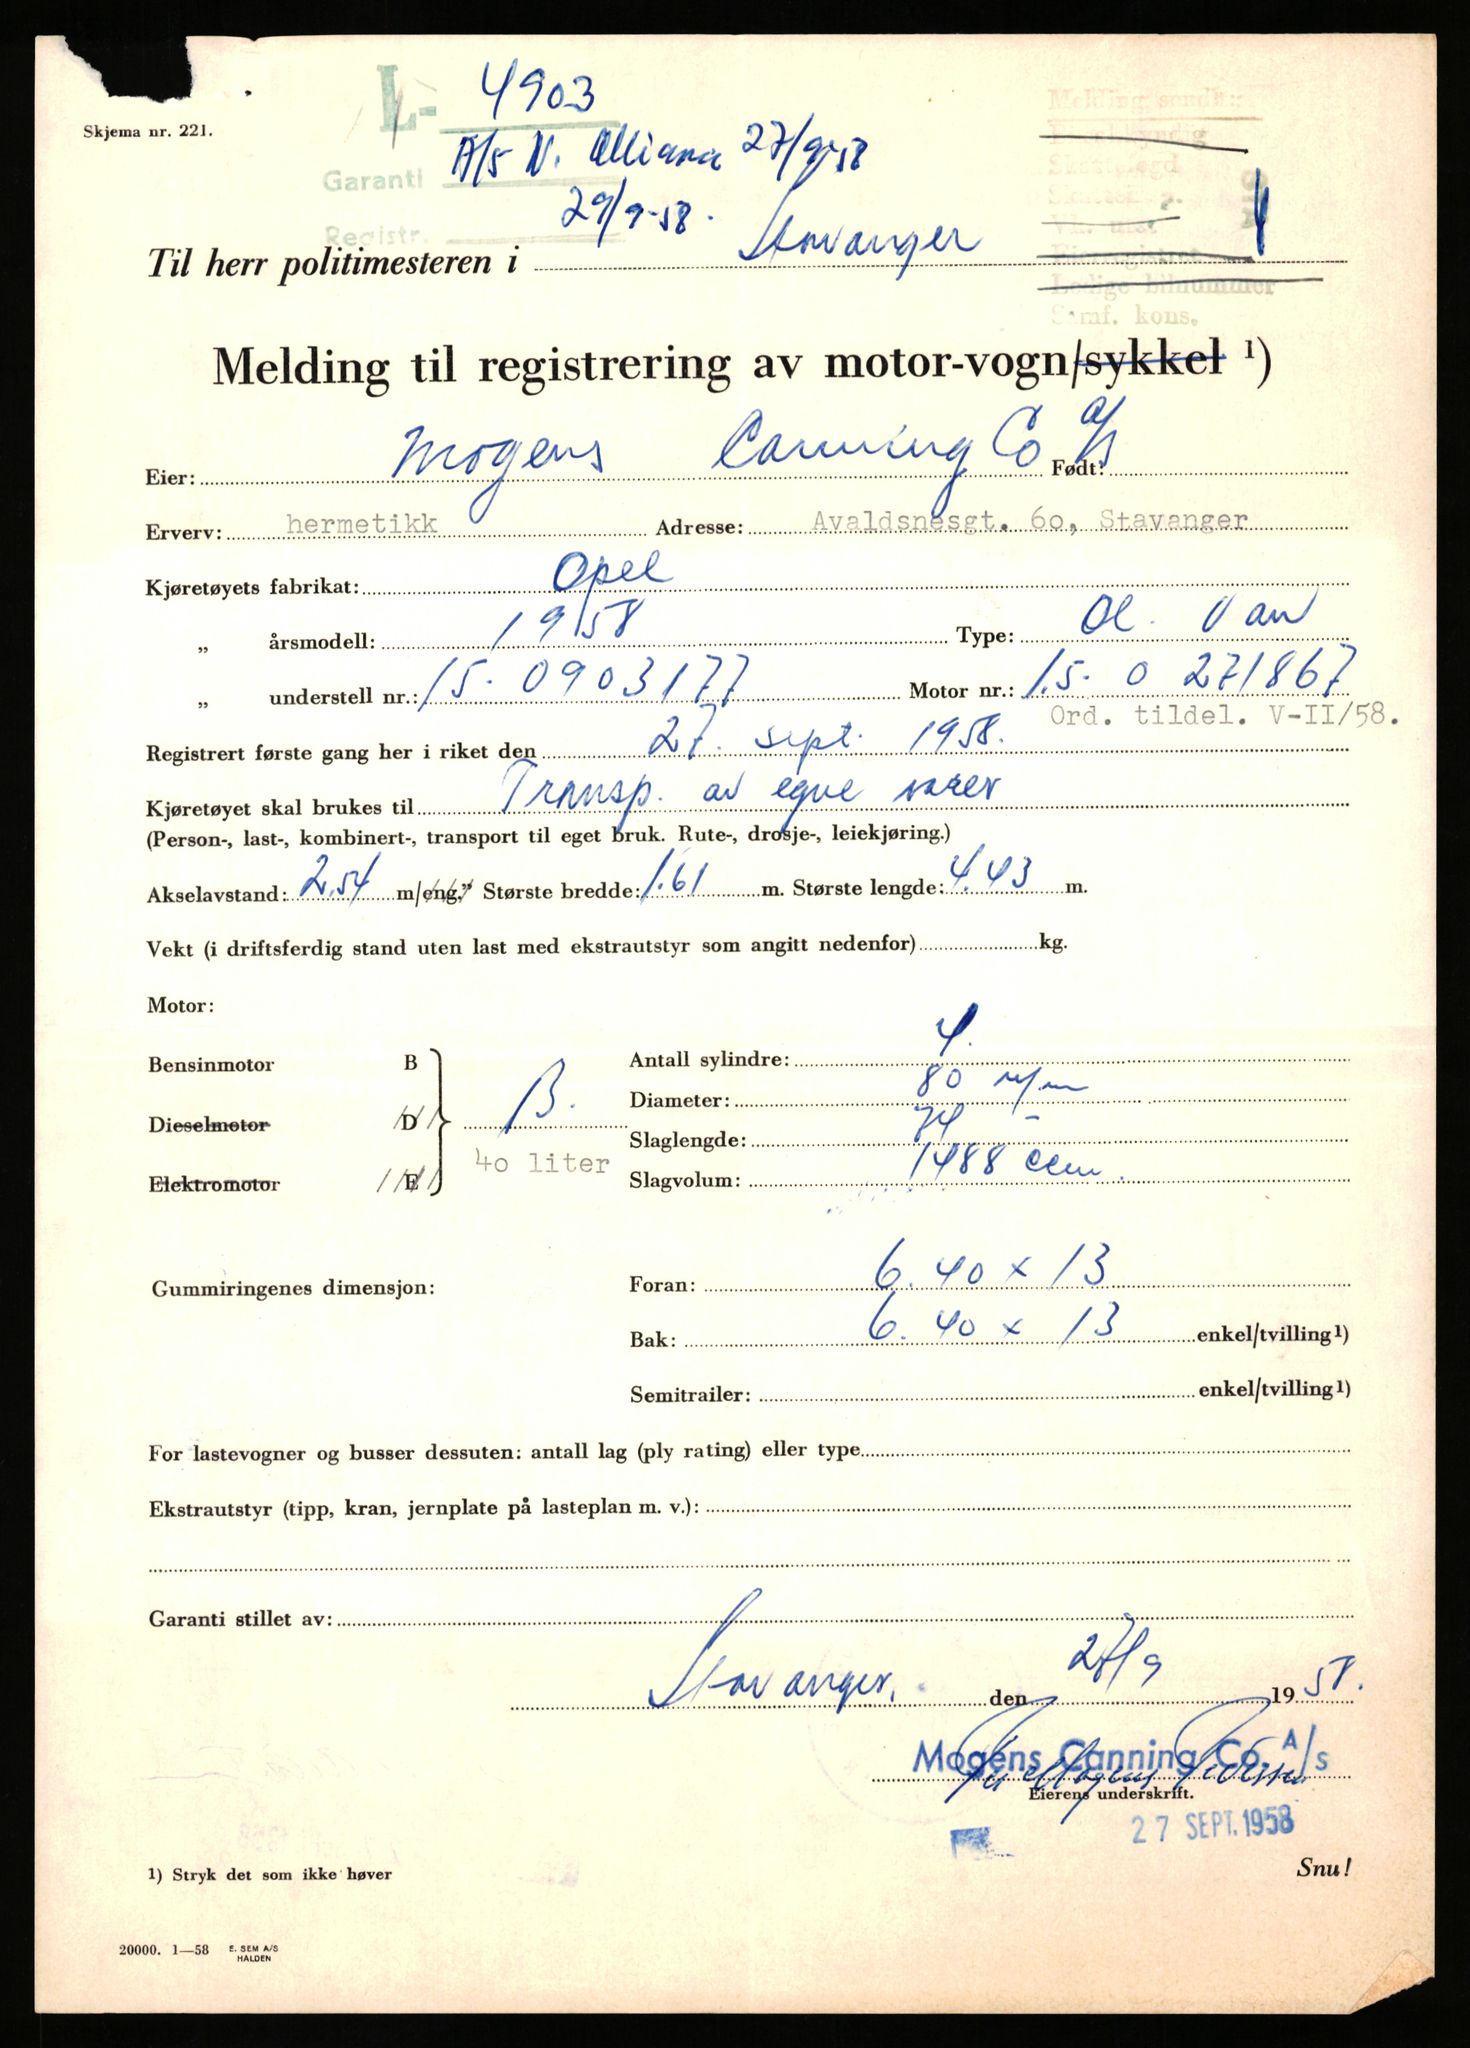 L- 4903
Skjema nr. 221.
Melding sendt:
Garanti A/S N. Alliance 27/9-58
Registr. 29/9-58.
Lodige bilnummer
Samf. kons.
Til herr politimesteren i Stavanger
Melding til registrering av motor-vogn/sykkel 1)
Eier: Mogens Canning Co A/S Født:
Erverv: hermetikk Adresse: Avaldsnesgt. 60, Stavanger
Kjøretøyets fabrikat: Opel
„ årsmodell: 1958 Type: Ol. Van
„ understell nr.: 15-0903177 Motor nr.: 1.5-0 271867
Ord. tildel. V-II/58.
Registrert første gang her i riket den 27. sept. 1958.
Kjøretøyet skal brukes til Transp. av egne varer
(Person-, last-, kombinert-, transport til eget bruk. Rute-, drosje-, leiekjøring.)
Akselavstand: 2.54 m/eng." Største bredde: 1.61 m. Største lengde: 4.43 m.
Vekt (i driftsferdig stand uten last med ekstrautstyr som angitt nedenfor) kg.
Motor:
Bensinmotor B
Dieselmotor D
Elektromotor E
B.
40 liter
Antall sylindre: 4.
Diameter: 80 m/m
Slaglengde: 74 -
Slagvolum: 1488 ccm.
Gummiringenes dimensjon: Foran: 6.40 x 13
Bak: 6.40 x 13 enkel/tvilling1)
Semitrailer: enkel/tvilling1)
For lastevogner og busser dessuten: antall lag (ply rating) eller type
Ekstrautstyr (tipp, kran, jernplate på lasteplan m. v.):
Garanti stillet av:
Stavanger, den 27/9 1958.
Mogens Canning Co. A/S
Eierens underskrift.
27 SEPT. 1958
1) Stryk det som ikke høver
Snu!
20000. 1—58 E. SEM A/S
HALDEN